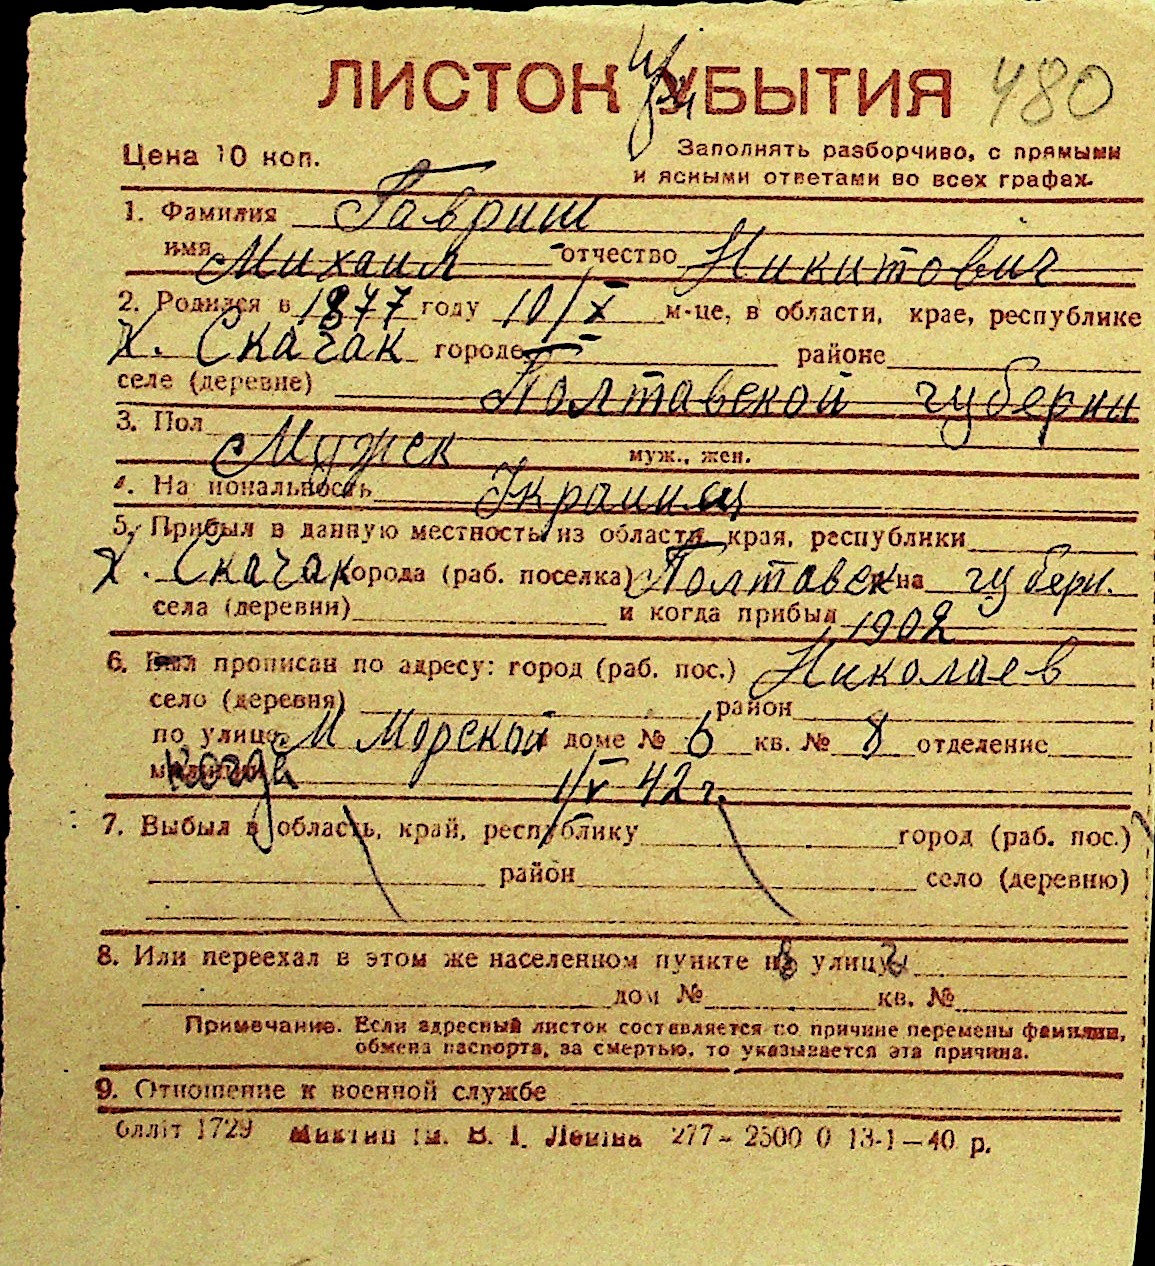 ЛИСТОК УБЫТИЯ 480
Цена 10 коп.
Заполнять разборчиво, с прямыми
и ясными ответами во всех графах.
1. Фамилия Гавриш
имя Михаил отчество Никитович
2. Родился в 1877 году 10/X м-це, в области, крае, республике
Х. Скачак городе районе
селе (деревне) Полтавской губерни
3. Пол Мужск муж., жен.
4. Национальность Украинец
5. Прибыл в данную местность из области, края, республики
Х. Скачак города (раб. поселка) Полтавск на губерн.
села (деревни) и когда прибыл 1902
6. Был прописан по адресу: город (раб. пос.) Николаев
село (деревня) район
по улице М Морской доме № 6 кв. № 8 отделение
милиции когда 1/V 42 г.
7. Выбыл в область, край, республику город (раб. пос.)
район село (деревню)
8. Или переехал в этом же населенном пункте на улицу
дом № кв. №
Примечание. Если адресный листок составляется по причине перемены фамилии,
обмена паспорта, за смертью, то указывается эта причина.
9. Отношение к военной службе
блліт 1729 ім. В. І. Леніна 277- 2500 0 13-1-40 р.